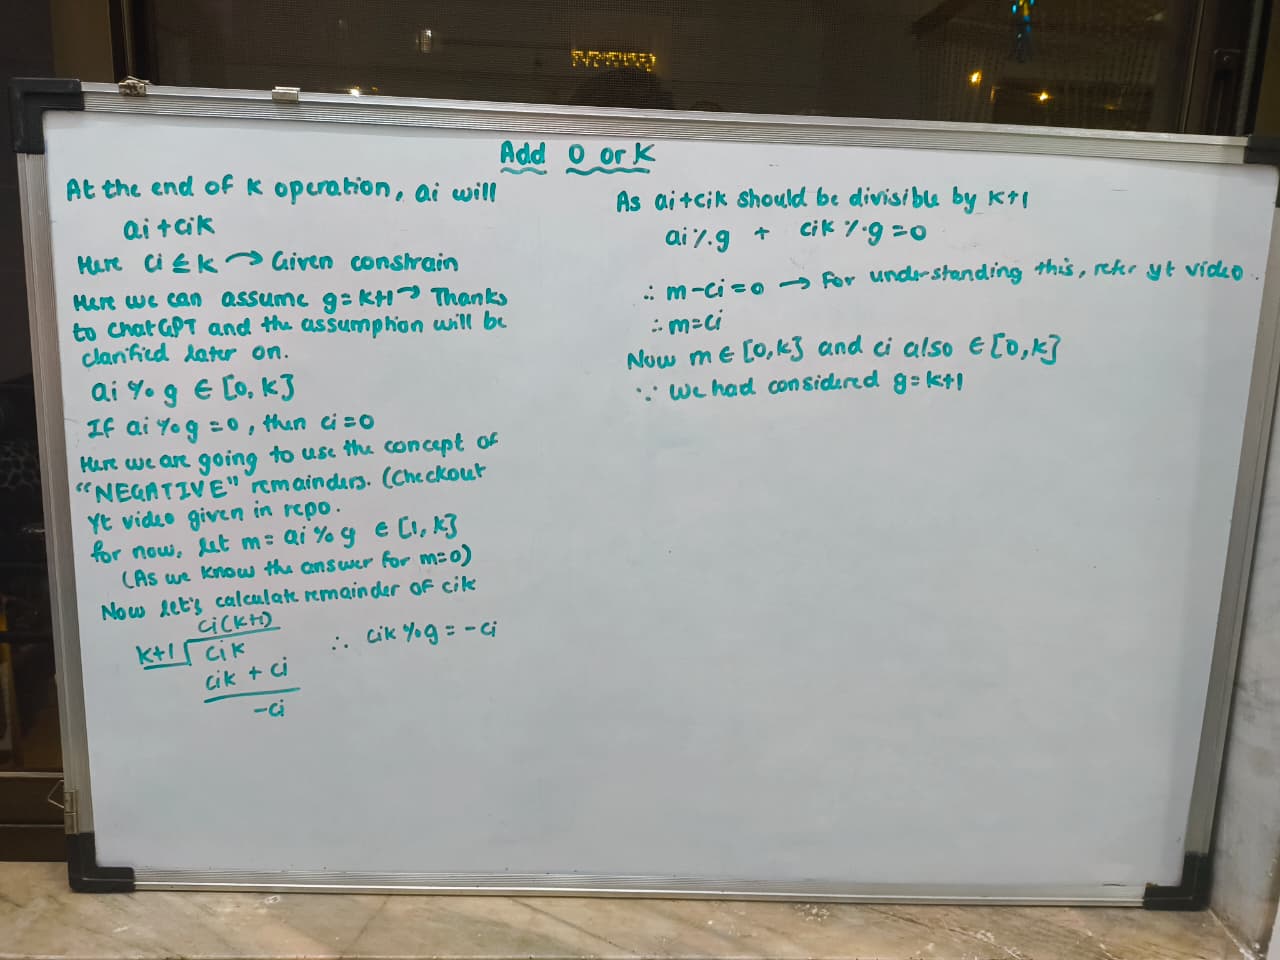 Add 0 or K
At the end of K operation, ai will
ai+cik
Here ci ≤ K → Given constrain
Here we can assume g=K+1 → Thanks
to ChatGPT and the assumption will be
clarified later on.
ai % g ∈ [0, K]
If ai % g = 0, then ci=0
Here we are going to use the concept of
"NEGATIVE" remainders. (Checkout
Yt video given in repo.
for now, let m = ai % g ∈ [1, K]
(As we know the answer for m=0)
Now let's calculate remainder of cik
ci(k+1)
K+1 cik ∴ cik % g = -ci
cik + ci
-ci
As ai+cik should be divisible by K+1
ai % g + cik % g = 0
∴ m-ci=0 → For understanding this, refer yt video.
∴ m=ci
Now m ∈ [0,K] and ci also ∈ [0,K]
∵ We had considered g=k+1